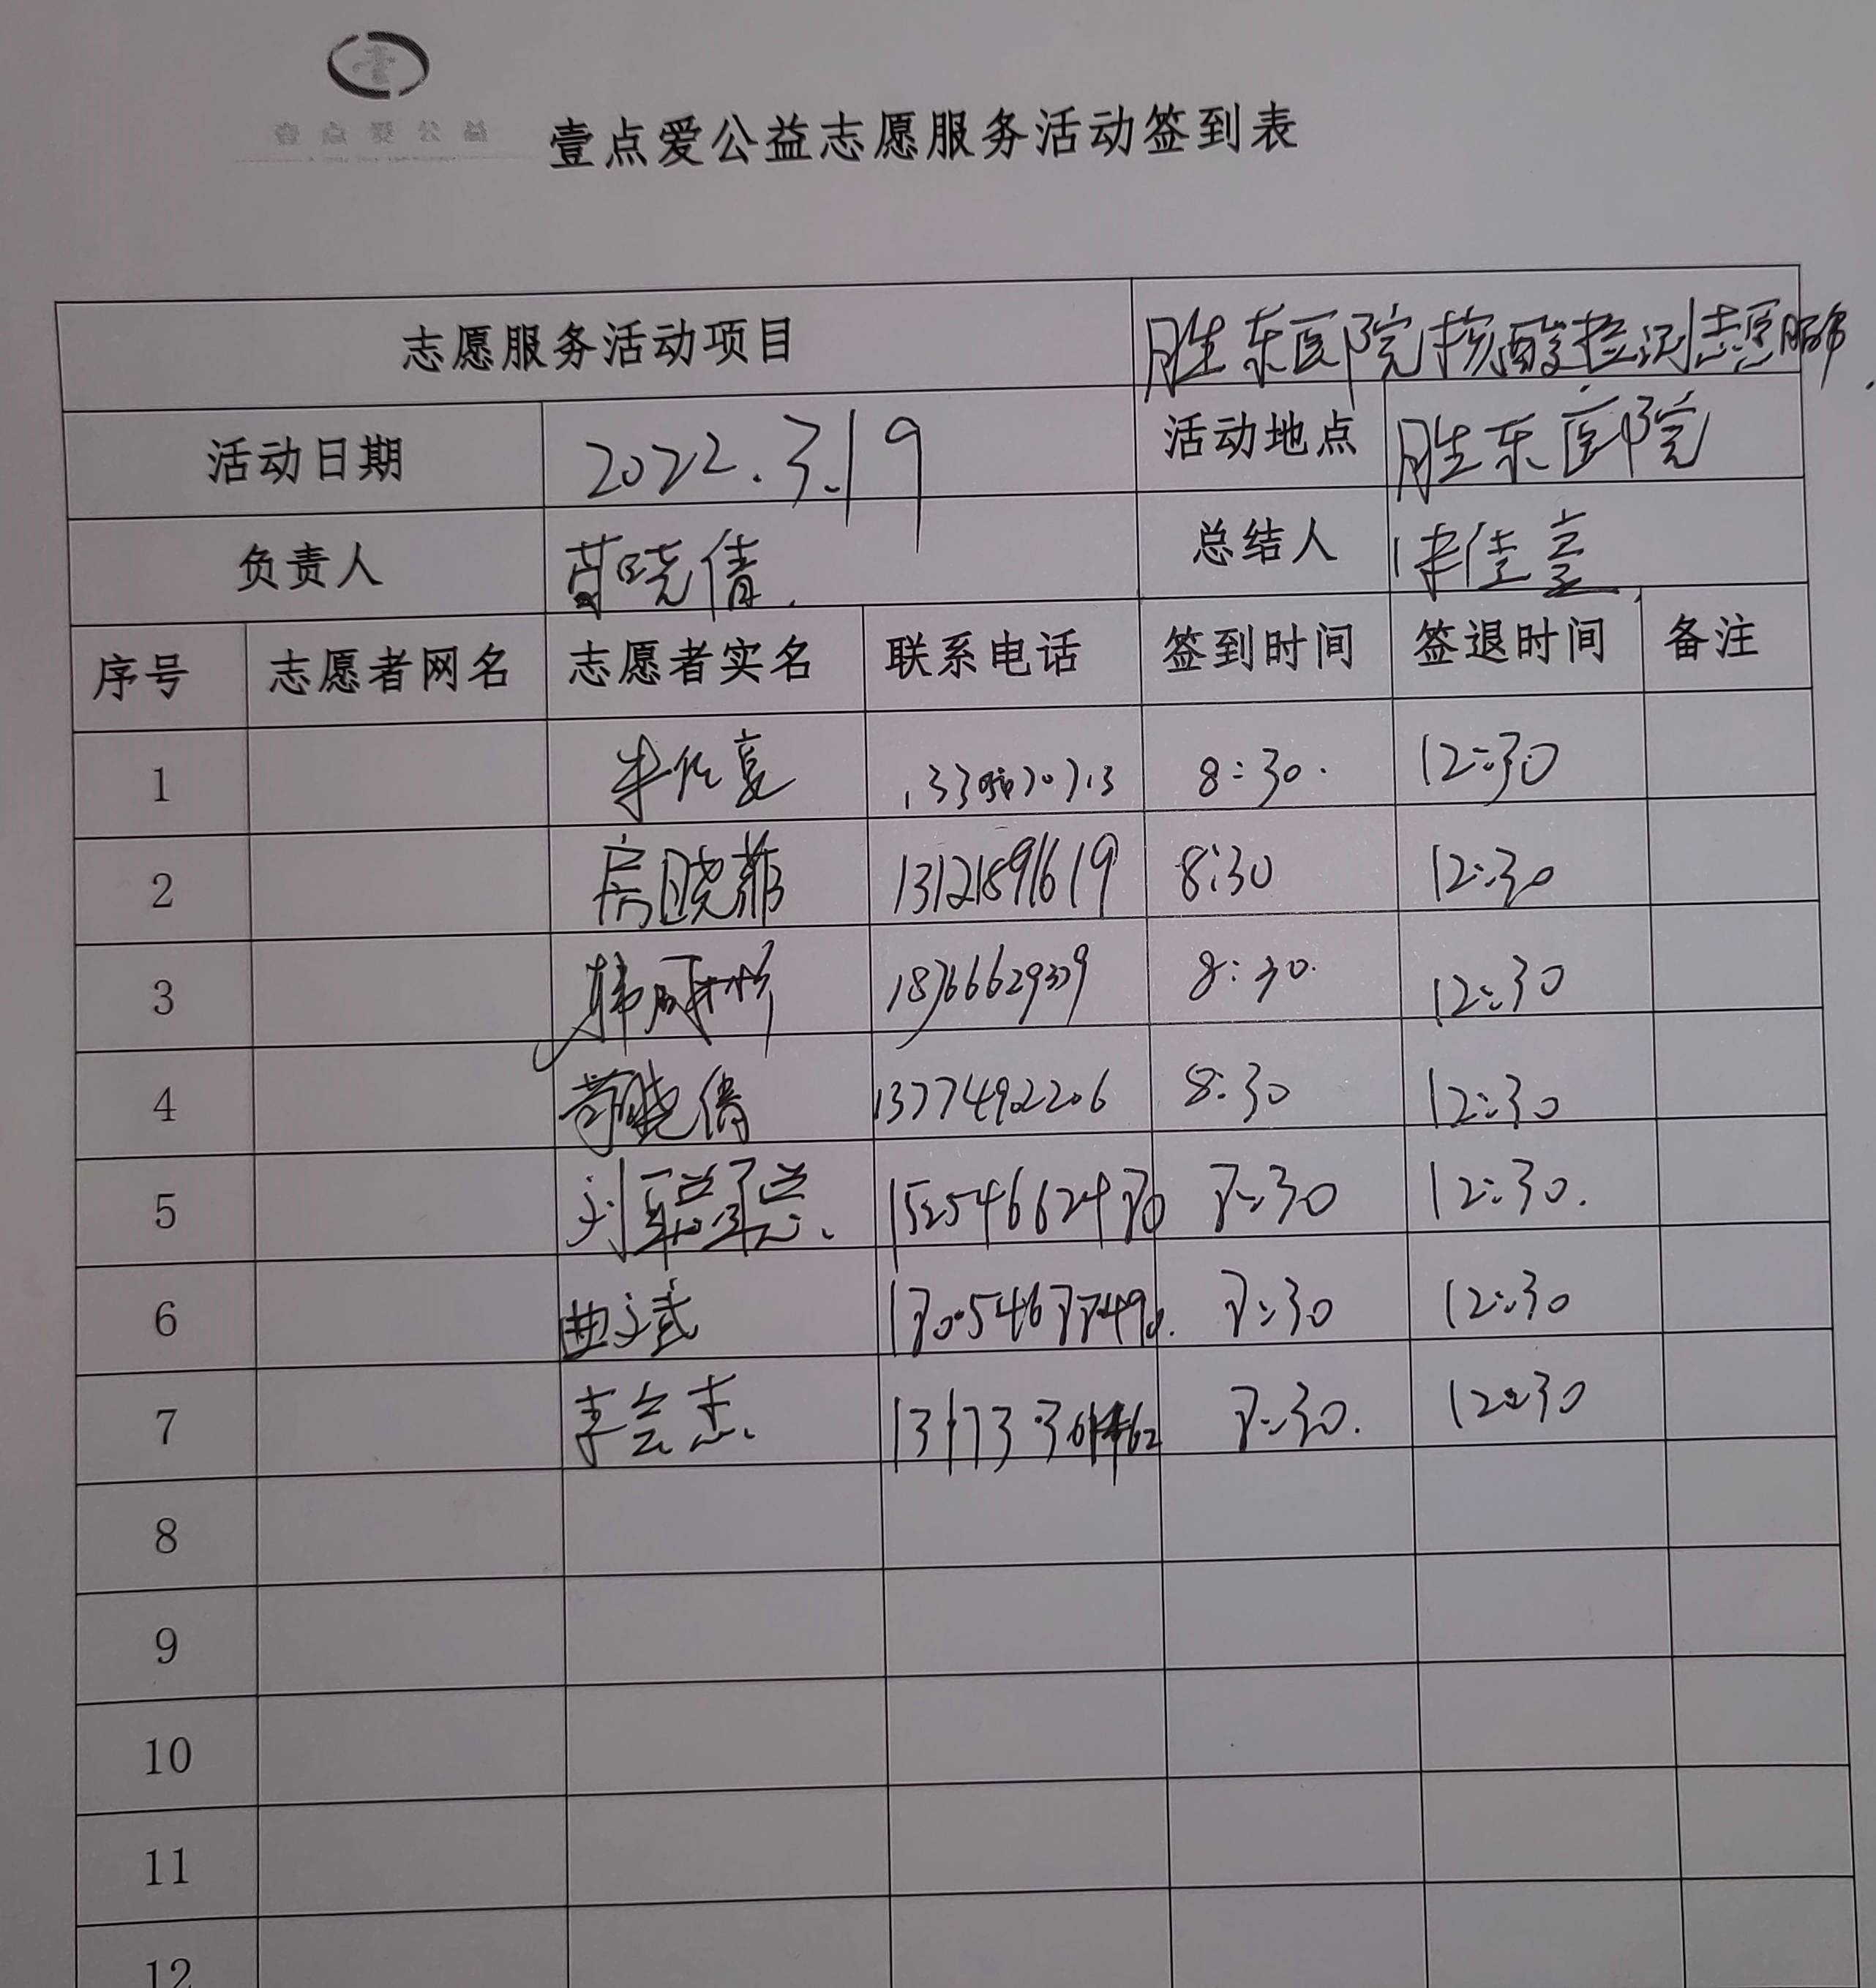 壹点爱公益
壹点爱公益志愿服务活动签到表
志愿服务活动项目 胜东医院核酸检测志愿服务
活动日期 2022.3.19 活动地点 胜东医院
负责人 晓倩 总结人
序号 志愿者网名 志愿者实名 联系电话 签到时间 签退时间 备注
1 8:30 12:30
2 房晓菲 13121891619 8:30 12:30
3 韩 18766629309 8:30 12:30
4 晓倩 13774922206 8:30 12:30
5 刘聪聪 15254662470 7:30 12:30
6 曲文武 17054677490 7:30 12:30
7 李会杰 7:30 12:30
8
9
10
11
12